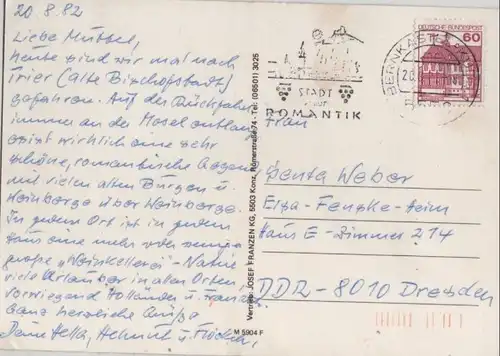 20.8.82
Liebe Muttel,
heute sind wir mal nach
Trier (alte Bischofstadt)
gefahren. Auf der Rückfahrt
immer an der Mosel entlang
wirklich eine sehr
schöne, romantische Gegend
mit vielen alten Burgen u.
Weinberge über Weinberge.
In jedem Ort ist in jedem
Haus eine mehr oder weniger
große "Weinkellerei" -
viele Urlauber in allen Orten,
vorwiegend Holländer u.
Ganz herzliche Grüße
Deine Hella, Helmut u.
Vertrieb: JOSEF FRANZEN KG, 5503 Konz, Römerstraße 74 - Tel: (06501) 3025
M 5904 F
STADT
der
ROMANTIK
BERNKASTEL
DEUTSCHE BUNDESPOST
60
Frau
Weber
Elsa-Fenske-Heim
Haus E - Zimmer 214
DDR - 8010 Dresden